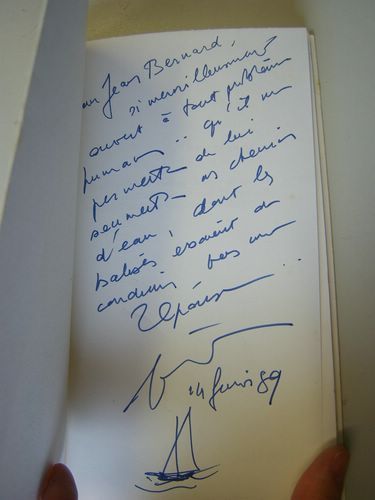 au Jean Bernard,
si merveilleusement
ouvert à tout problème
humain .. qu'il me
permette de lui
soumettre ces chemins
d'eau, dont les
balises essaient de
conduire vers une
Réponse ...
14 89